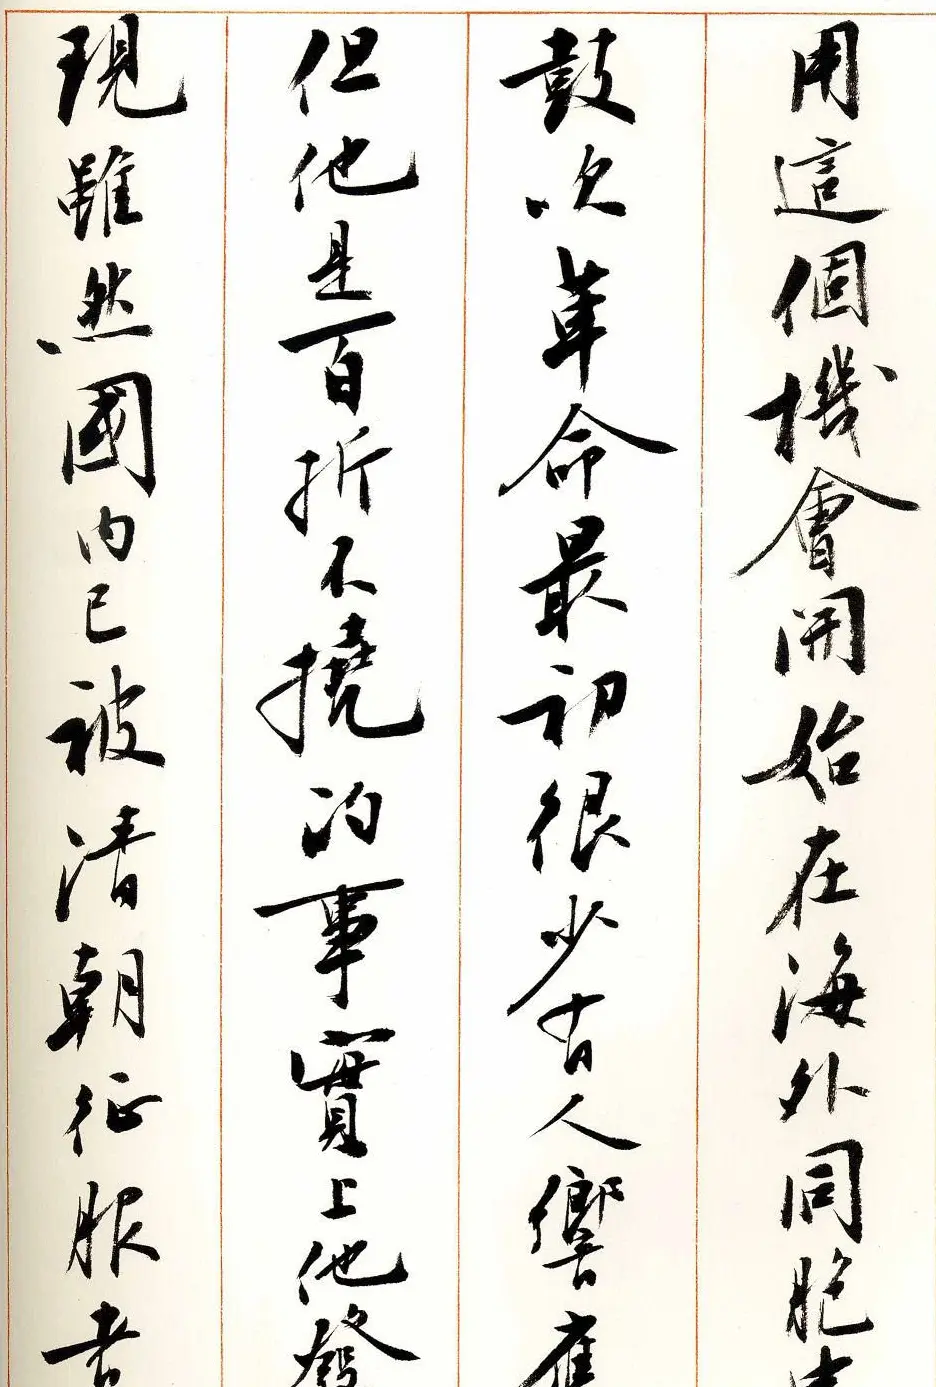 用這個機會開始在海外同胞中
鼓吹革命最初很少有人響應
但他是百折不撓的事實上他發
現雖然國內已被清朝征服者